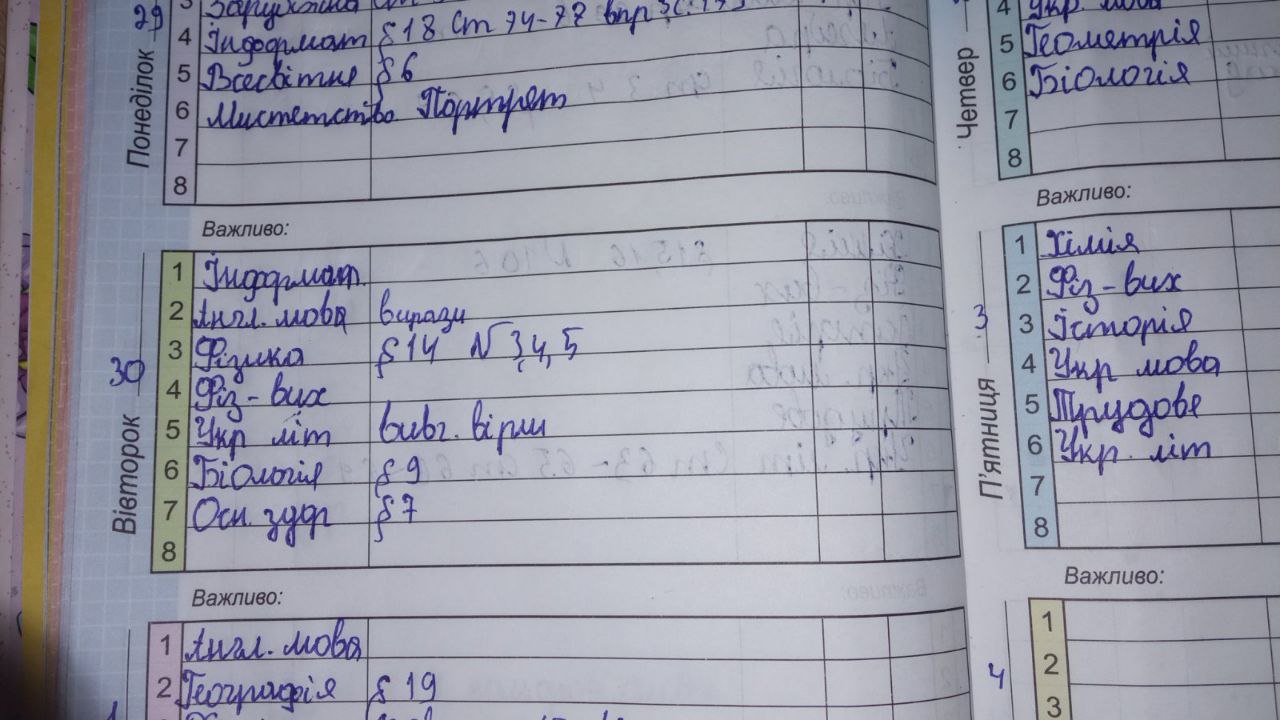 29
Понеділок
3 Зарубіжна
4 Інформат §18 Ст 74-77 впр
5 Всесвітня §6
6 Мистетство Портрет
7
8
Важливо:
30
Вівторок
1 Інформат.
2 Англ. мова вирази
3 Фізика §14 № 3,4,5
4 Фіз-вих
5 Укр літ вивч. вірш
6 Біологія §9
7 Осн. здор §7
8
Важливо:
1 Англ. мова
2 Географія §19
Четвер
4 Укр. мова
5 Геометрія
6 Біологія
7
8
Важливо:
3
П'ятниця
1 Хімія
2 Фіз-вих
3 Історія
4 Укр мова
5 Трудове
6 Укр. літ
7
8
Важливо:
4
1
2
3